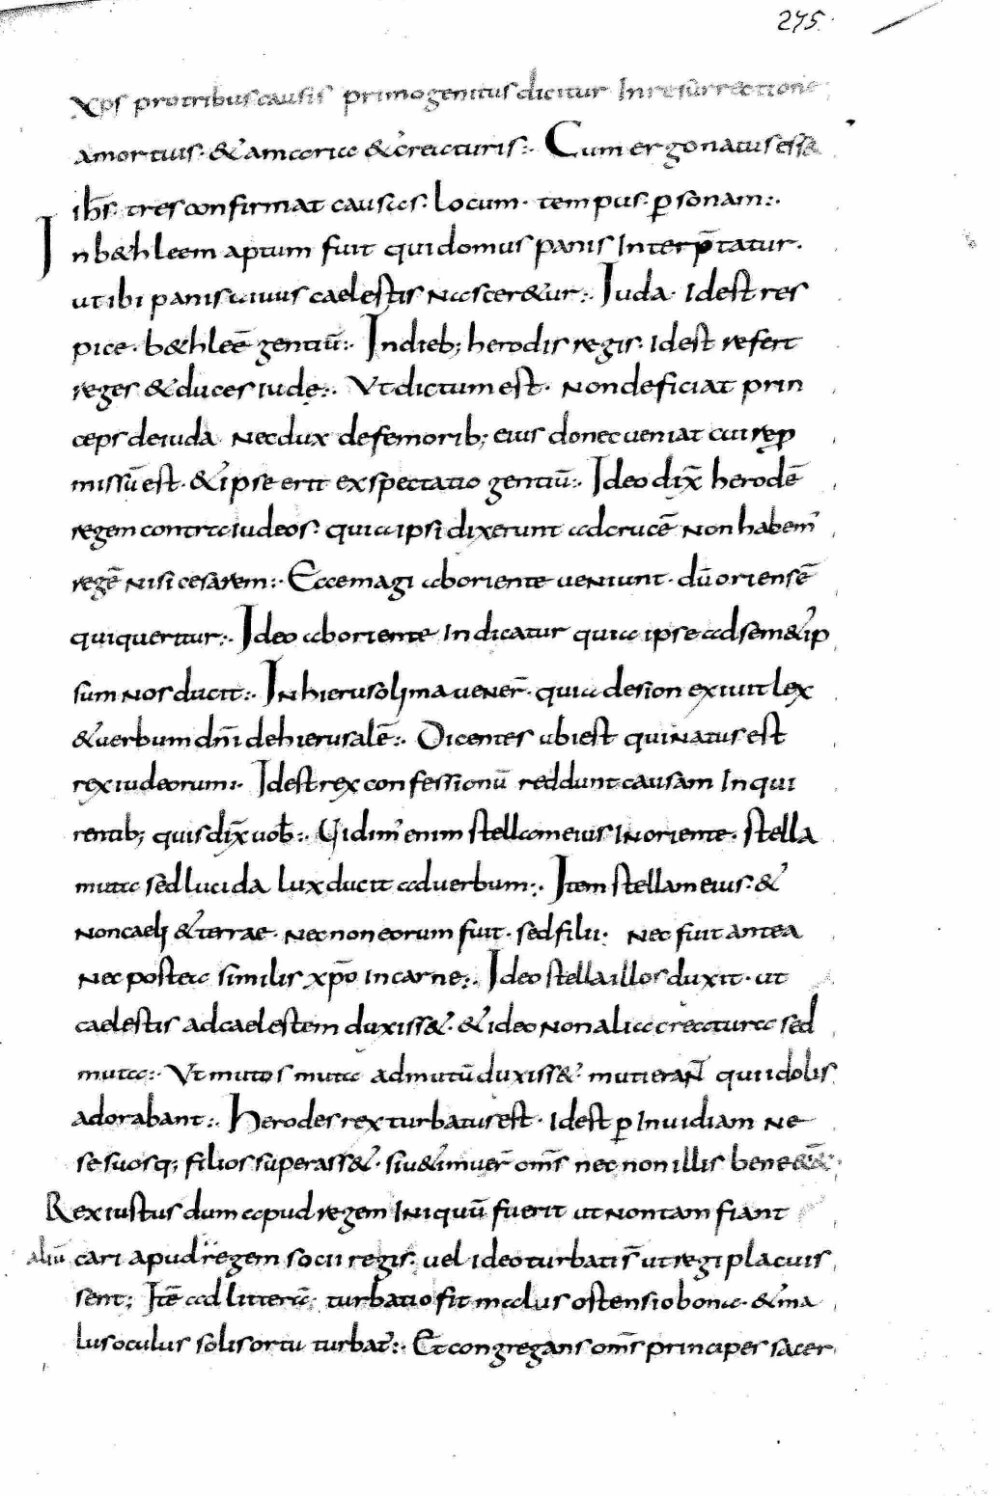 245.
Xp̄s pro tribus causis primogenitus dicitur In resurrectione
a mortuis · & a maria & creaturis :· Cum ergo natus ess&
ih̄s · tres confirmat causas · Locum · tempus · p̱sonam :·
In b&hleem aptum fuit qui domus panis Interp̄tatur ·
ut ibi panis uiuus caelestis nascer&ur :· Iuda · Idest res
pice · b&hleē gentiū :· In dieb; herodis regis · Idest refert
reges & duces iudę :· Ut dictum est · Non deficiat prin
ceps de iuda Nec dux de femorib; eius donec ueniat cui rep̱
missū est · & ipse erit exspectatio gentiū :· Ideo dix̄ herodē
regem contra iudeos · quia ipsi dixerunt ad crucē Non habem'
regē Nisi cesarem :· Ecce magi ab oriente ueniunt · dū oriensē
qui queritur :· Ideo ab oriente Indicatur quia ipse ad sem&ip
sum Nos ducit :· In hierusolima uener̄ · quia de sion exiuit lex
& uerbum dn̄i de hierusalē :· Dicentes ubi est qui Natus est
rex iudeorum :· Idest rex confessionū reddunt causam Inqui
rentib; quis dix̄ uob̄ :· Uidim' enim stellam eius IN oriente · stella
muta sed lucida lux ducit ad uerbum :· Item stellam eius · &
Non caeli & terrae · Nec non eorum fuit · sed filii · Nec fuit antea
Nec postea similis xp̄o In carne :· Ideo stella illos duxit · ut
caelestis ad caelestem duxiss& · & ideo Non alia creatura sed
muta :· Ut mutos muta ad mutū duxiss& · muti eraN̄ qui idolis
adorabant :· Herodes rex turbatus est · Idest p̱ Inuidiam Ne
se suosq; filios superass& · siu& inuer̄ om̄s nec non illis bene
Rex iustus dum apud regem INiquū fuerit ut Non tam fiant
aliū cari apud regem socii regis · uel ideo turbati s̄ ut regi placuis
sent; Itē ad litterā · turbatio fit malus ostensio bona · & ma
lus oculus solis ortu turbat̄ :· Et congregans om̄s principes sacer